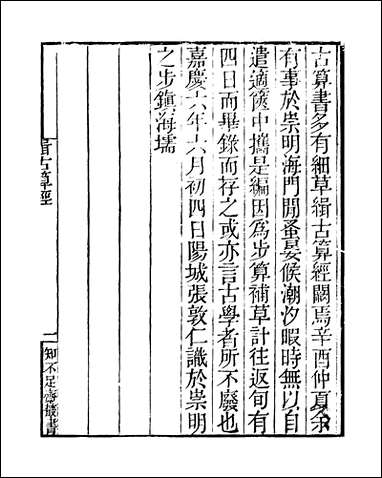 古算書多有細草緝古算經闕焉辛酉仲夏余
有事於崇明海門閒蚤晏候潮汐暇時無以自
遣適篋中攜是編因爲步算補草計往返旬有
四日而畢錄而存之或亦言古學者所不廢也
嘉慶六年六月初四日陽城張敦仁識於崇明
之步鎭海壖
緝古算經
一
知不足齋叢書